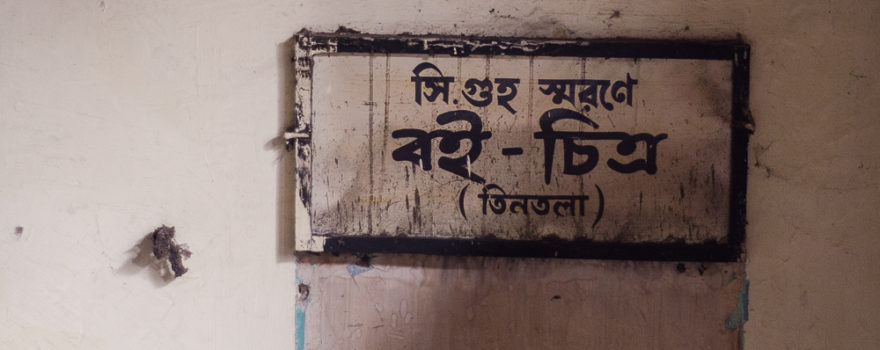 সি.গুহ স্মরণে
বই - চিত্র
( তিনতলা )